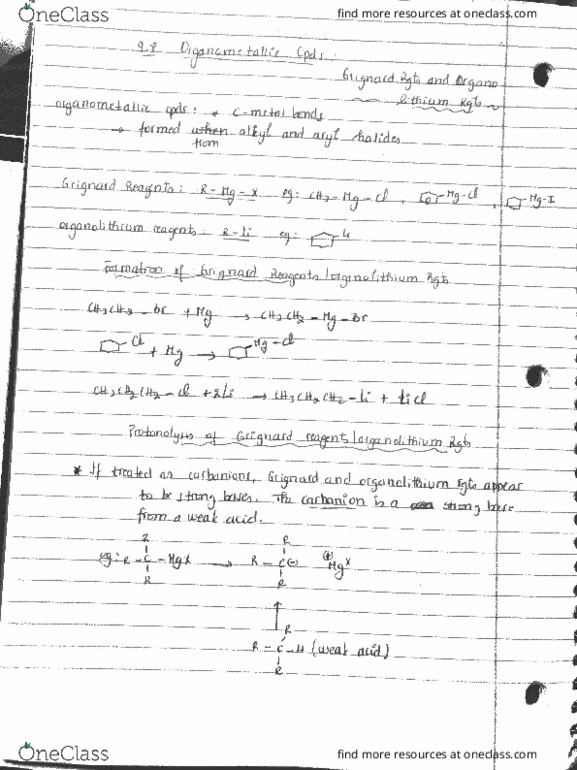 OneClass find more resources at oneclass.com
9.8 Organometallic Cpds:
Grignard Rgts and Organo
lithium Rgts
organometallic cpds: * C-metal bonds
→ formed when alkyl and aryl halides
from
Grignard Reagents: R-Mg-X eg: CH3-Mg-Cl, Mg-Cl, Mg-I
organolithium reagents: R-Li eg: Li
Formation of Grignard Reagents/organolithium Rgts
CH3CH2-Br + Mg → CH3CH2-Mg-Br
Cl + Mg → Mg-Cl
CH3CH2CH2-Cl + 2Li → CH3CH2CH2-Li + LiCl
Protonolysis of Grignard reagents/organolithium Rgts
* If treated as carbanions, Grignard and organolithium rgts appear
to be strong bases. The carbanion is a strong base
from a weak acid.
R R
eg: R-C-MgX → R-C(-) (+)MgX
R R
↑
R
R-C-H (weak acid)
R
OneClass find more resources at oneclass.com